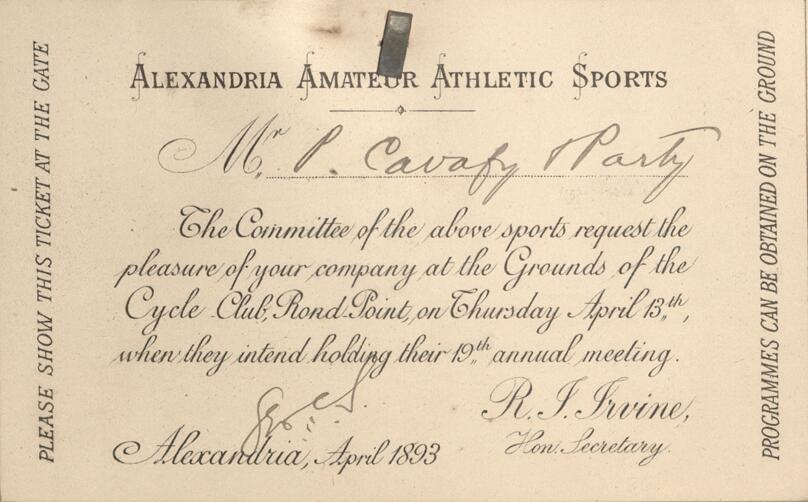 ALEXANDRIA AMATEUR ATHLETIC SPORTS
Mr. P. Cavafy & Party
The Committee of the above sports request the
pleasure of your company at the Grounds of the
Cycle Club, Rond Point, on Thursday April 13th,
when they intend holding their 19th annual meeting.
R. J. Irvine,
Hon. Secretary.
Alexandria, April 1893
PLEASE SHOW THIS TICKET AT THE GATE
PROGRAMMES CAN BE OBTAINED ON THE GROUND